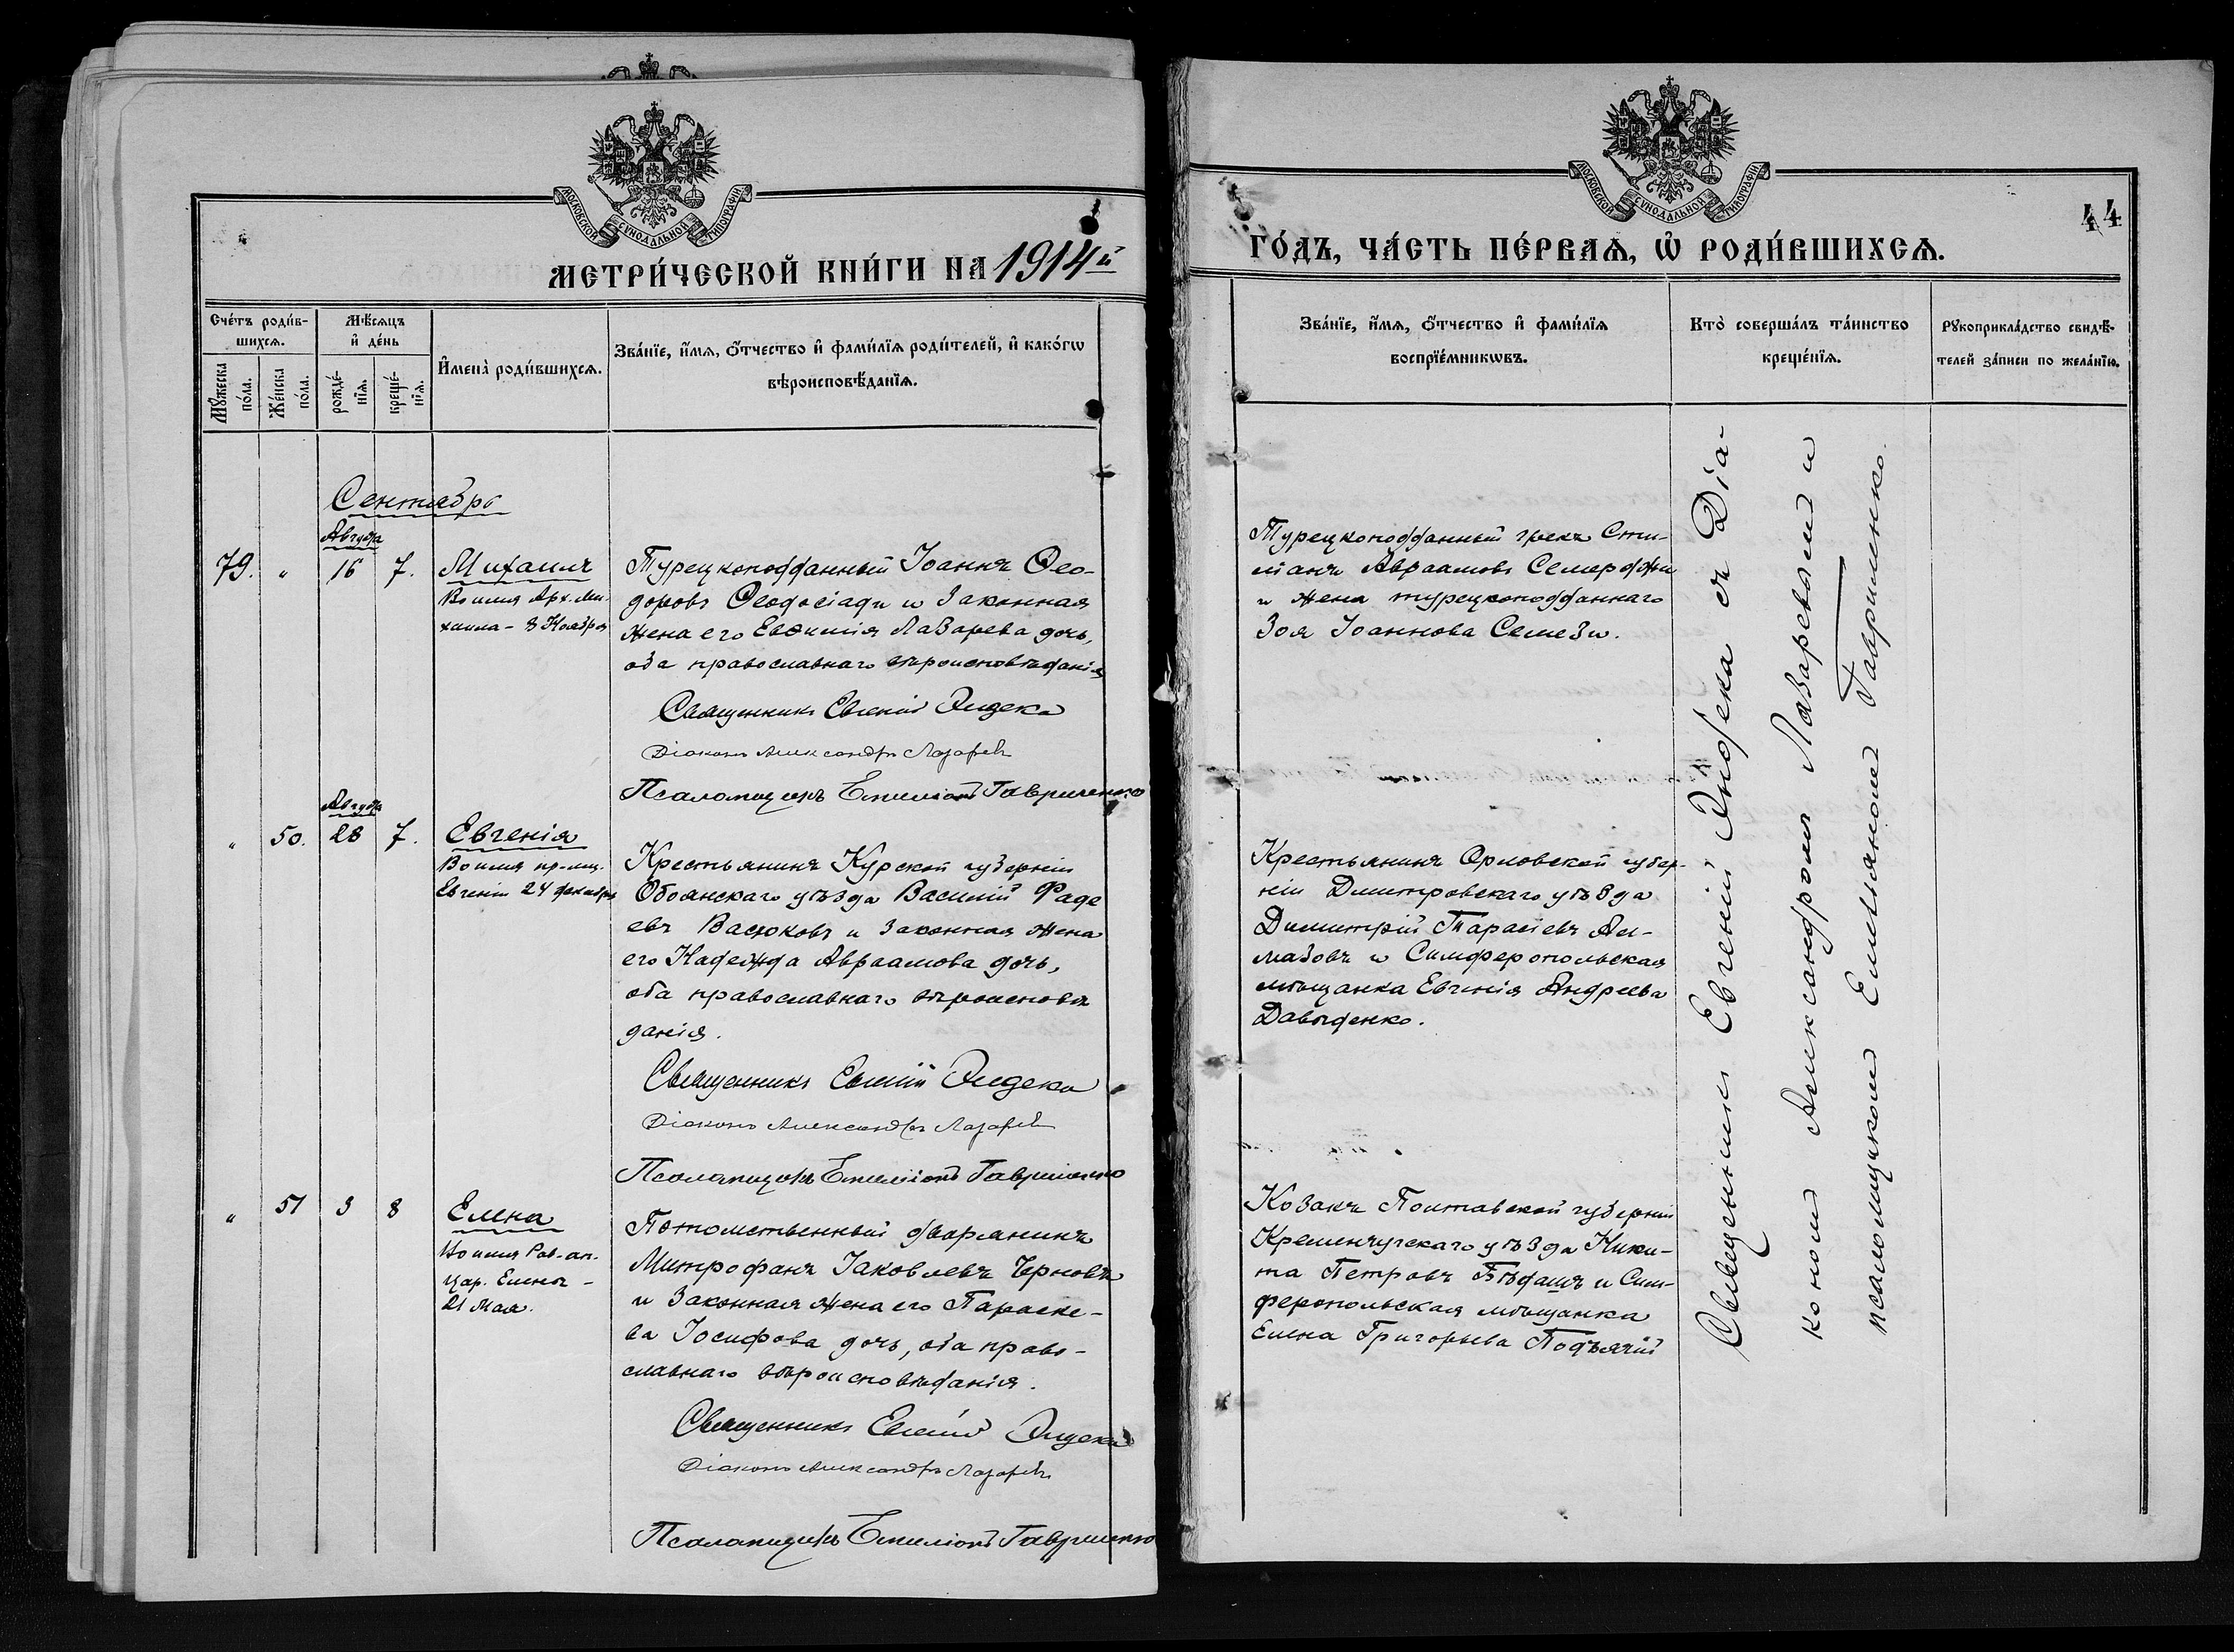 МОСКОВСКОЙ СѴНОДАЛЬНОЙ ТИПОГРАФІИ
МЕТРИ́ЧЕСКОЙ КНИ́ГИ НА 1914й
Сче́тъ роди́в-
шихсѧ.
Мꙋ́жеска
по́ла.
Же́нска
по́ла.
Мѣ́сѧцъ
и҆ де́нь
рожде́-
нїѧ.
креще́-
нїѧ.
И҆мена̀ роди́вшихсѧ.
Зва́нїе, и҆́мѧ, ѻ҆́тчество и҆ фами́лїѧ роди́телей, и҆ како́гѡ
вѣроисповѣ́данїѧ.
Сентябрь
Августа
79. " 16 7. Михаилъ
Во имя Арх. Ми-
хаила - 8 Ноября
Турецкоподданный Іоаннъ Ѳео-
доровъ Ѳеодосіади и законная
жена его Евѳимія Лазарева дочь,
оба православнаго вѣроисповѣданія
Священникъ Евгеній Эндека
Діаконъ Александръ Лазаревъ
Псаломщикъ Емиліанъ Гавриленко
Августа
" 50. 28 7. Евгенія
Во имя пр-мц.
Евгеніи 24 декабря
Крестьянинъ Курской губерніи
Обоянскаго уѣзда Василій Фаде
евъ Васюковъ и законная жена
его Надежда Авраамова дочь,
оба православнаго вѣроисповѣ
данія.
Священникъ Евгеній Эндека
Діаконъ Александръ Лазаревъ
Псаломщикъ Емиліанъ Гавриленко
" 51 3 8 Елена
Во имя Рав-ап.
цар. Елены -
21 Мая.
Потомственный дворянинъ
Митрофанъ Іаковлевъ Черновъ
и законная жена его Параске-
ва Іосифова дочь, оба право-
славнаго вѣроисповѣданія.
Священникъ Евгеній Эндека
Діаконъ Александръ Лазаревъ
Псаломщикъ Емиліанъ Гавриленко
МОСКОВСКОЙ СѴНОДАЛЬНОЙ ТИПОГРАФІИ
44
ГО́ДЪ, ЧА́СТЬ ПЕ́РВАѦ, Ѡ҆ РОДИ́ВШИХСѦ.
Зва́нїе, и҆́мѧ, ѻ҆́тчество и҆ фами́лїѧ
воспрїе́мникѡвъ.
Кто̀ соверша́лъ та́инство
креще́нїѧ.
Рꙋкоприкла́дство свидѣ́-
телей за́писи по жела́нїю.
Турецкоподданный грекъ Сти-
лианъ Авраамовъ Семерджи
и жена турецкоподданнаго
Зоя Іоаннова Семези.
Крестьянинъ Орловской губер-
ніи Дмитровскаго уѣзда
Димитрій Тарасіевъ Ал-
мазовъ и Симферопольская
мѣщанка Евгенія Андреева
Давыденко.
Козакъ Полтавской губерніи
Кременчугскаго уѣзда Ники-
та Петровъ Бѣдашъ и Сим-
феропольская мѣщанка
Елена Григорьева Подъячій
Священникъ Евгеній Эндека съ Діа-
кономъ Александромъ Лазаревымъ и
псаломщикомъ Емельяномъ Гавриленко.